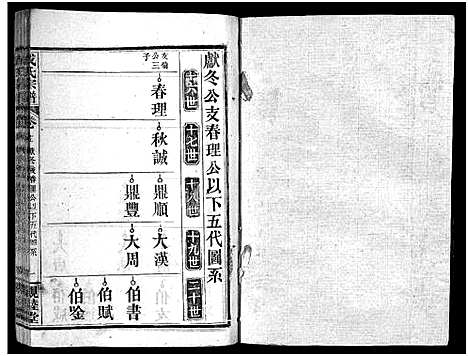 獻冬公支春理公以下五代圖系
十六世
十七世
十八世
十九世
二十世
友倫公三子
春理
秋誠
鼎順
鼎豐
大漢
大周
伯書
伯賦
伯鑒
氏宗譜
獻冬公支春理公以下五代圖系
親睦堂